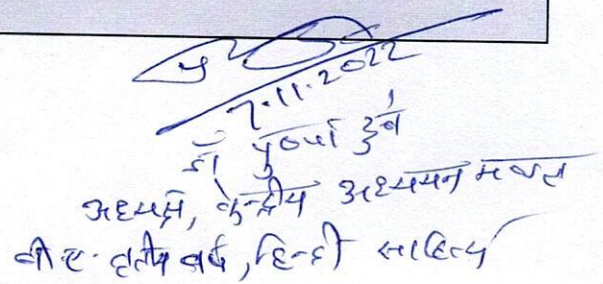 7.11.2022
डॉ पुष्पा दुबे
अध्यक्ष, केन्द्रीय अध्ययन मण्डल
बी.ए. तृतीय वर्ष, हिन्दी साहित्य